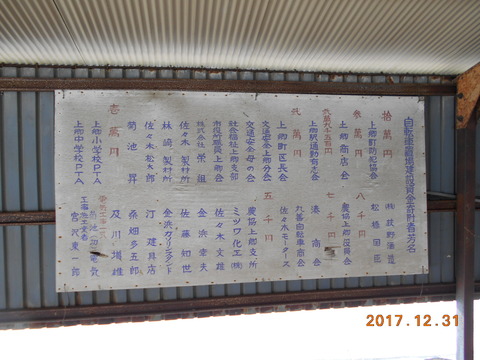 自転車置場建設資金寄附者芳名
拾萬円
上郷町防犯協会
(株)荻野酒造
松橋国臣
参萬円
上郷商店会
八千円
農協上郷役員会
弐萬九千五百円
上郷駅通勤有志会
七千円
湊商会
弐萬円
上郷町区長会
佐々木モータース
交通安全上郷分会
五千円
交通安全母の会
農協上郷支所
社会福祉上郷支部
ミツワ化工(株)
市役所職員上郷会
佐々木文雄
株式会社 栄組
金浜幸夫
佐々木製材所
佐藤知世
林崎製材所
金浜ガソリンスタンド
佐々木松太郎
汀建具店
菊池昇
桑畑多五郎
壱萬円
及川場雄
上郷小学校PTA
上郷中学校PTA
工事施工業者
宮沢東一郎
2017.12.31